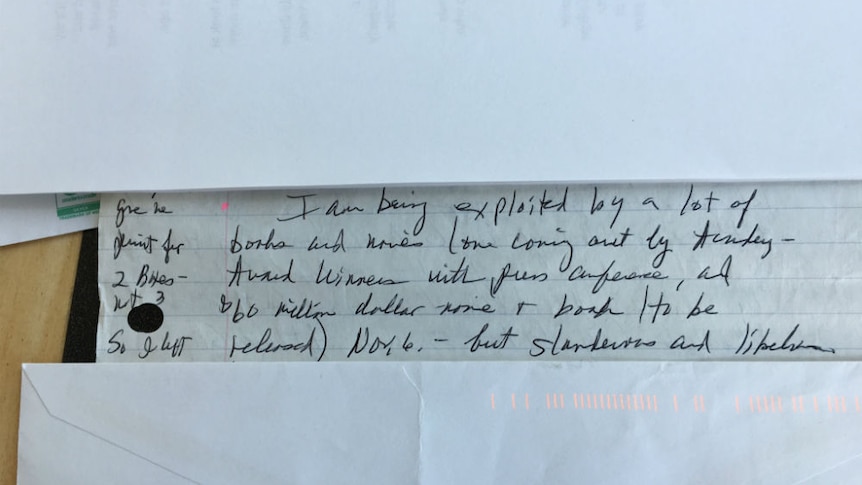 I am being exploited by a lot of
books and movies (one coming out by Academy-
Award Winners with press conference, and
$60 million dollar movie + book (to be
released) Nov. 6. - but slanderous and libelous
Give he
2 Boxes-
not 3
So I left